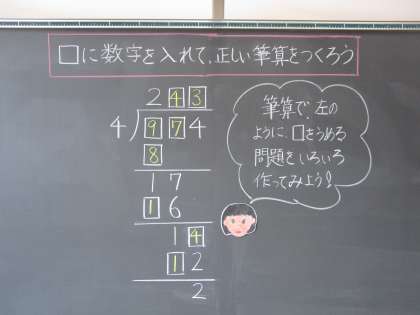 □に数字を入れて、正しい筆算をつくろう
2 4 3
4 ) 9 7 4
8
1 7
1 6
1 4
1 2
2
筆算で、左の
ように、□をうめる
問題をいろいろ
作ってみよう!